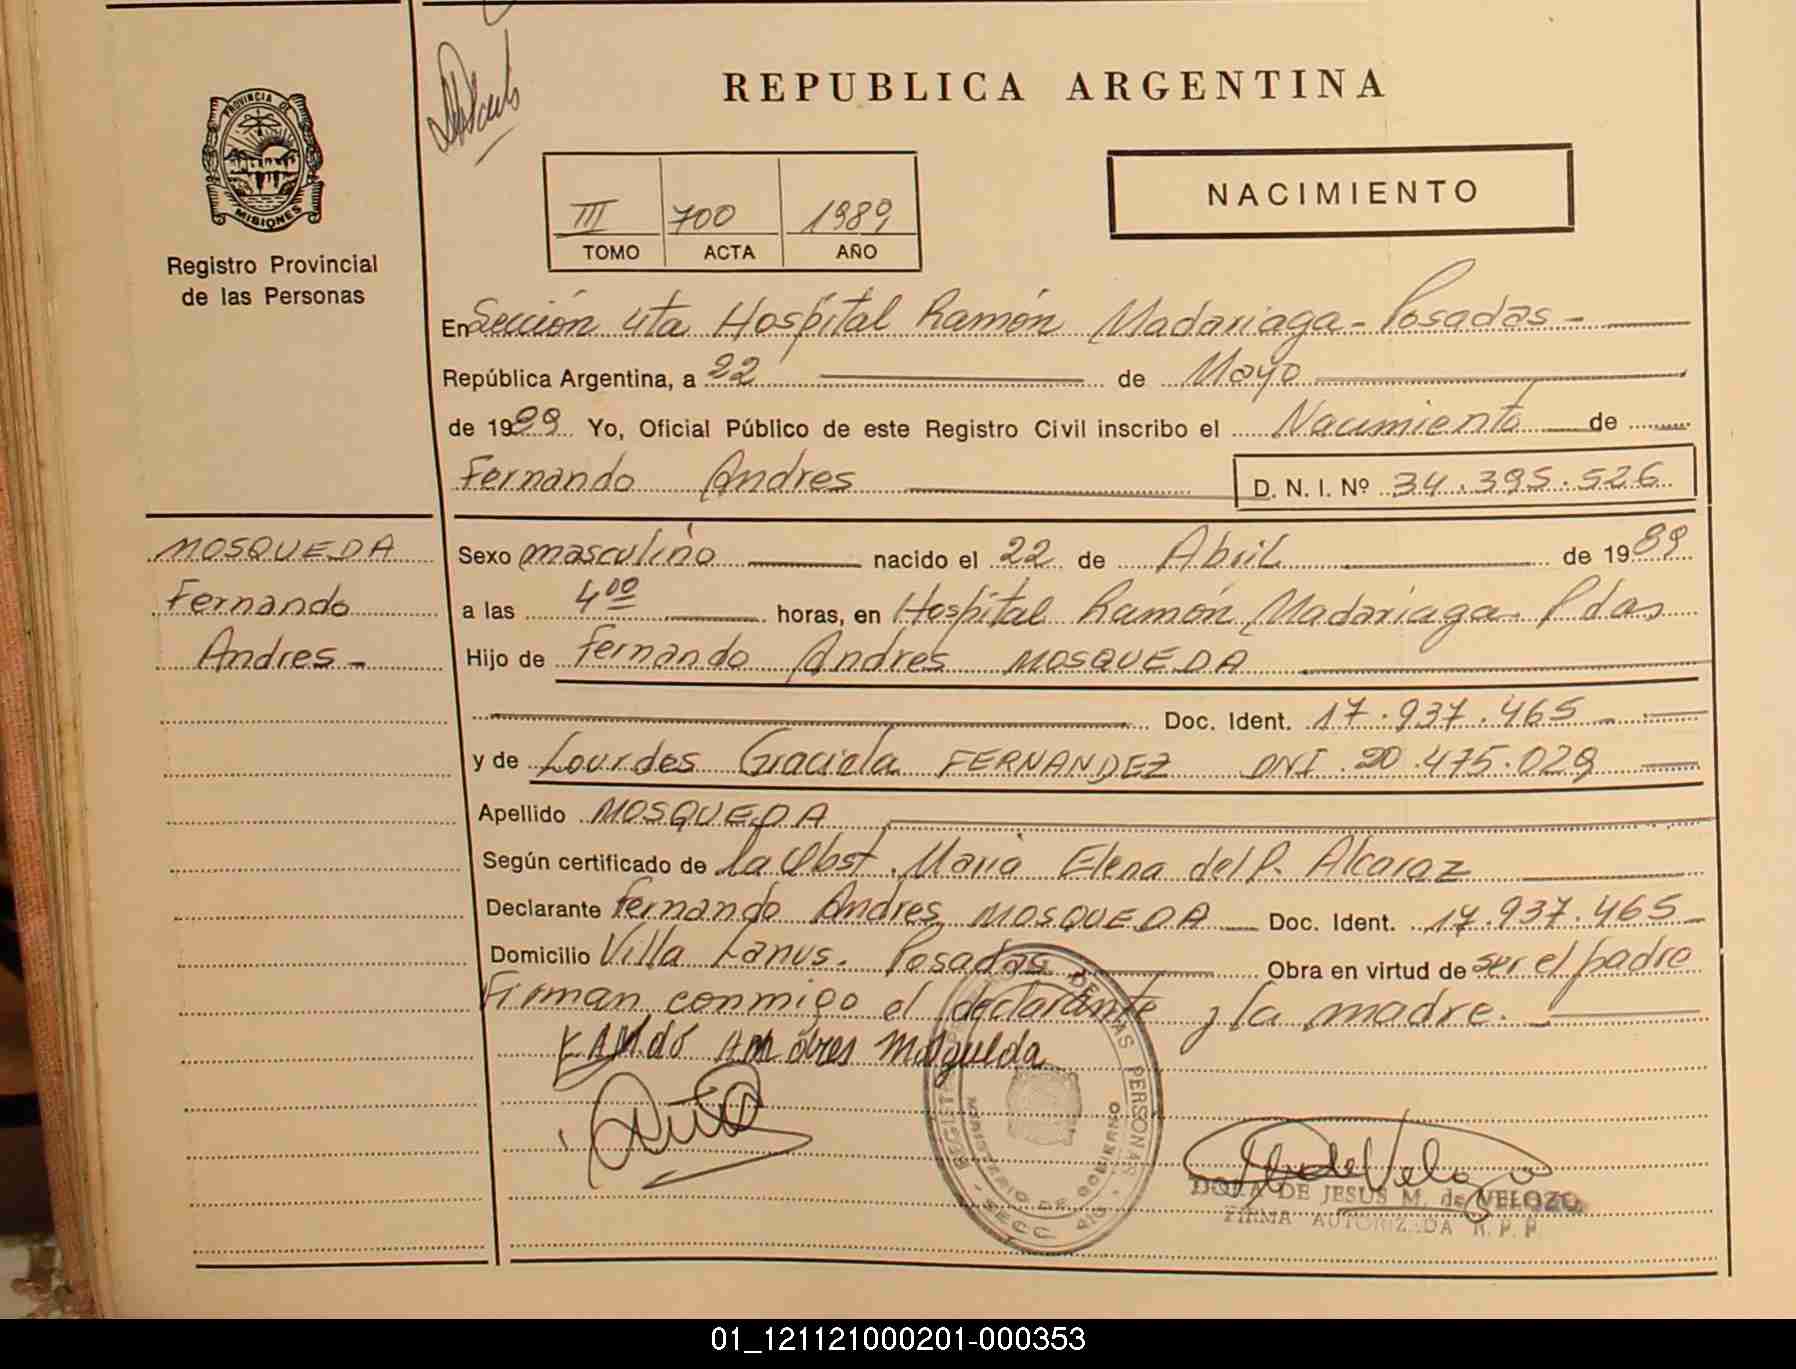 REPUBLICA ARGENTINA
PROVINCIA DE
MISIONES
Registro Provincial
de las Personas
III 700 1989
TOMO ACTA AÑO
NACIMIENTO
En Sección 4ta Hospital Ramón Madariaga - Posadas -
República Argentina, a 22 de Mayo
de 1989 Yo, Oficial Público de este Registro Civil inscribo el Nacimiento de
Fernando Andres D. N. I. Nº 34.395.526
MOSQUEDA
Fernando
Andres -
Sexo masculino nacido el 22 de Abril de 1989
a las 4 00 horas, en Hospital Ramón Madariaga - Pdas
Hijo de Fernando Andres MOSQUEDA
Doc. Ident. 17.937.465
y de Lourdes Graciela FERNANDEZ DNI 20.475.029
Apellido MOSQUEDA
Según certificado de la Obst. Maria Elena del P. Alcaraz
Declarante Fernando Andres MOSQUEDA Doc. Ident. 17.937.465
Domicilio Villa Lanus. Posadas Obra en virtud de ser el padre
Firman conmigo el declarante y la madre. -
Andres Mosqueda
DE LAS PERSONAS
MINISTERIO DE GOBIERNO
SECC. 4
de Velozo
DORA DE JESUS M. de VELOZO
FIRMA AUTORIZADA R. P. P
01_121121000201-000353